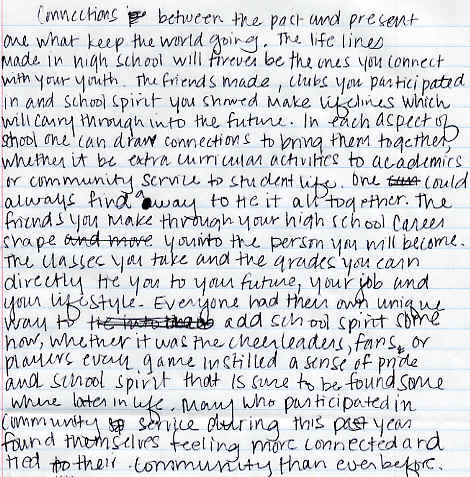 Connections between the past and present
are what keep the world going. The life lines
made in high school will forever be the ones you connect
with your youth. The friends made, clubs you participated
in and school spirit you showed make lifelines which
will carry through into the future. In each aspect of
shool one can draw connections to bring them together,
whether it be extra curricular activities to academics
or community service to student life. One could
always find away to tie it all together. The
friends you make through your high school career
shape you into the person you will become.
The classes you take and the grades you earn
directly tie you to your future, your job and
your lifestyle. Everyone had their own unique
way to add school spirit some
how, whether it was the cheerleaders, fans, or
players every game instilled a sense of pride
and school spirit that is sure to be found some
where later in life. Many who participated in
community service during this past year
found themselves feeling more connected and
tied to their community than ever before.